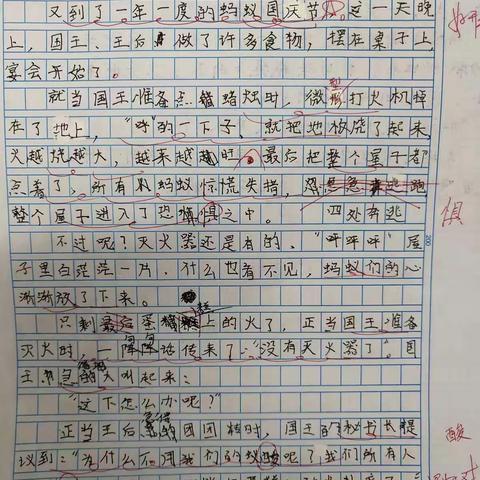 又到了一年一度的蚂蚁国庆节，这一天晚
上，国王、王后做了许多食物，摆在桌子上，
宴会开始了。
就当国王准备点蜡烛时，微型打火机掉
在了地上，“呼”的一下子，就把地板烧了起来，
火越烧越大，越来越 时，最后把整个屋子都
点着了，所有的蚂蚁惊慌失措，
整个屋子进入了恐惧之中。 四处奔逃
不过呢？灭火器还是有的、“呼呼呼”屋
子里白茫茫一片，什么也看不见，蚂蚁们的心
渐渐放了下来。
只剩最后蛋糕上的火了，正当国王准备
灭火时，一句话传来了：“没有灭火器了”。国
王 急 的大叫起来：
“这下怎么办呢？”
正当王后急的团团转时，国王的秘书长提
议到：“为什么不用我们的蚁酸呢？我们所有人
惧
酸